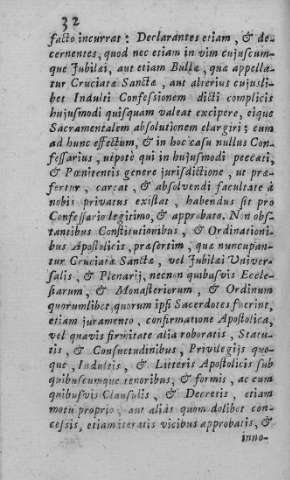 32
facto incurrat: Declarantes etiam, & de-
cernentes, quod nec etiam in vim cujuscum-
que Jubilæi, aut etiam Bullæ, quæ appella-
tur Cruciatæ Sanctæ, aut alterius cujusli-
bet Indulti Confessionem dicti complicis
hujusmodi quisquam valeat excipere, eique
Sacramentalem absolutionem elargiri; cum
ad hunc effectum, & in hoc casu nullus Con-
fessarius, utpotè qui in hujusmodi peccati,
& Pœnitentis genere jurisdictione, ut præ-
fertur, careat, & absolvendi facultate à
nobis privatus existat, habendus sit pro
Confessario legitimo, & approbato. Non obs-
tantibus Constitutionibus, & Ordinationi-
bus Apostolicis, præsertim, quæ nuncupan-
tur Cruciatæ Sanctæ, vel Jubilæi Univer-
salis, & Plenarij, necnon quibusvis Eccle-
siarum, & Monasteriorum, & Ordinum
quorumlibet, quorum ipsi Sacerdotes fuerint,
etiam juramento, confirmatione Apostolica,
vel quavis firmitate alia roboratis, Statu-
tis, & Consuetudinibus, Privilegijs quo-
que, Indultis, & Litteris Apostolicis sub
quibuscumque tenoribus, & formis, ac cum
quibusvis Clausulis, & Decretis, etiam
motu proprio, aut aliàs quom dolibet con-
cessis, etiam iteratis vicibus approbatis, &
inno-